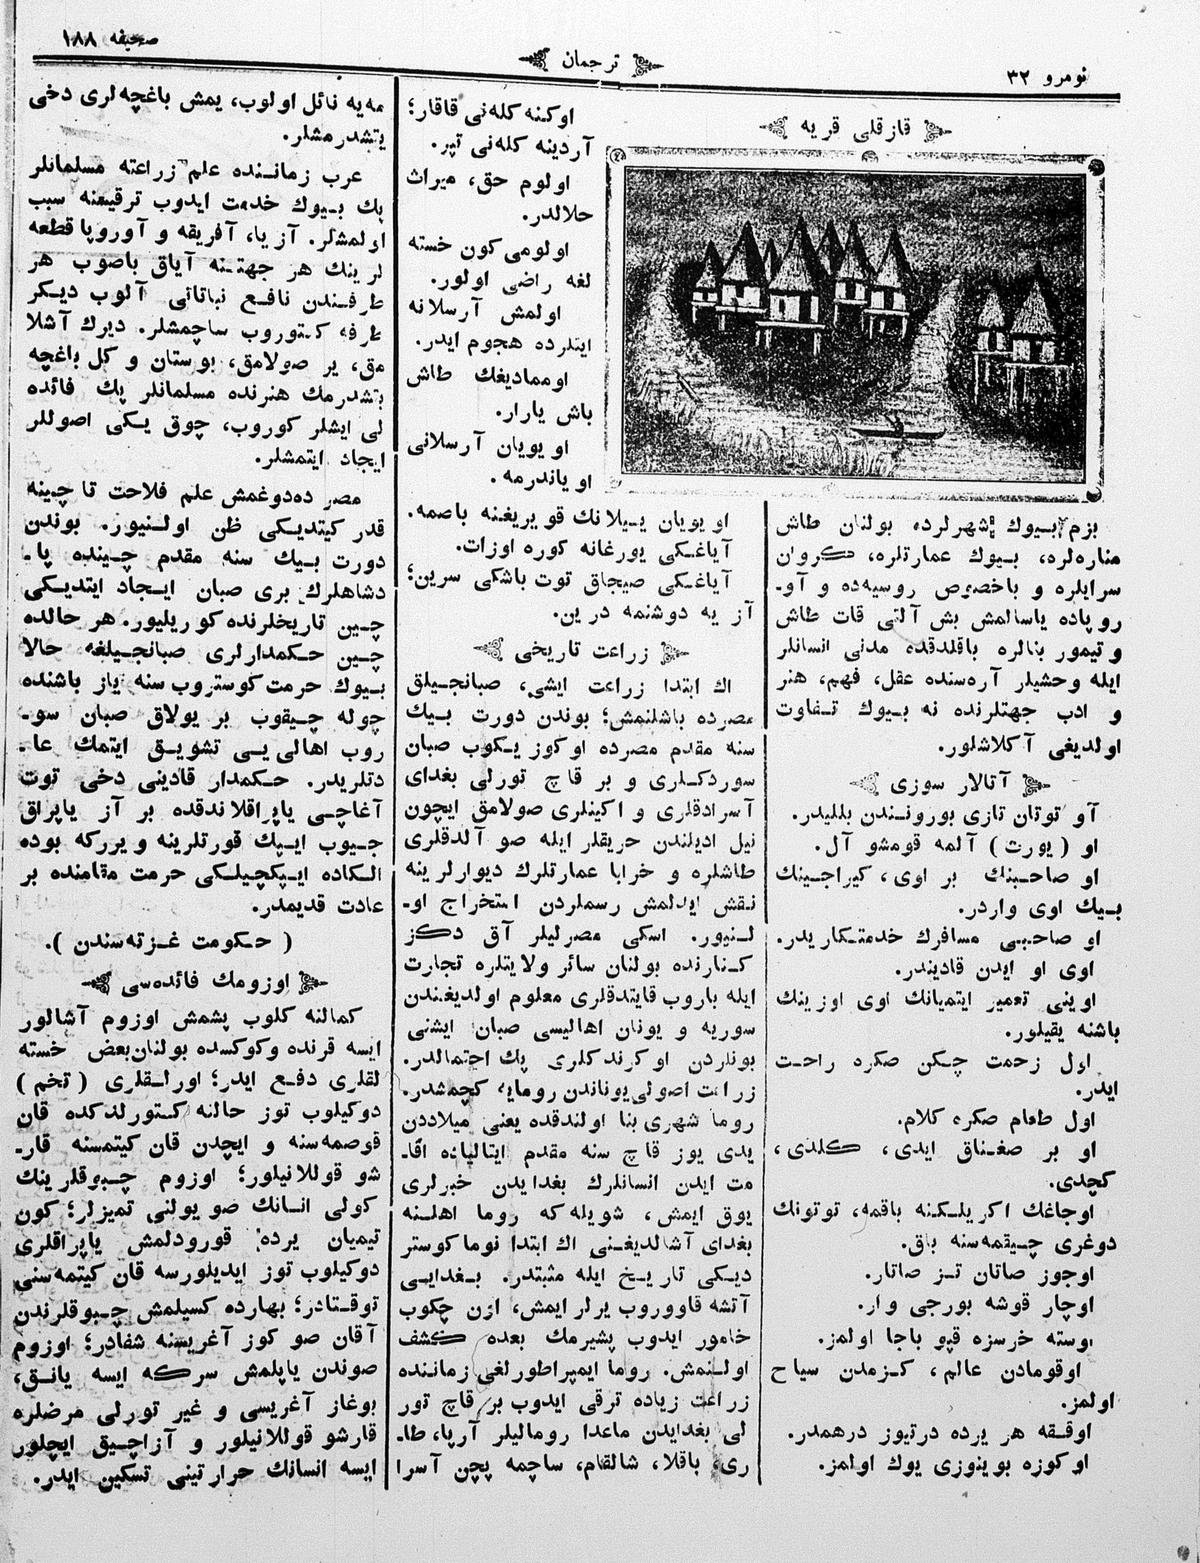 نومرو ٣٢
ترجمان
صحیفه ١٨٨
قازقلی قریه
بزم بیوك شهرلرده بولنان طاش
مناره‌لره، بیوك عمارتلره، كروان
سرایلره و باخصوص روسیه‌ده و آو-
روپاده یاسالمش بش آلتی قات طاش
و تیمور بنالره باقلدقده مدنی انسانلر
ایله وحشیلر آره‌سنده عقل، فهم، هنر
و ادب جهتلرنده نه بیوك تفاوت
اولدیغی آكلاشلور.
آتالار سوزی
آو توتان تازی بوروندن بللیدر.
او (یورت) آلمه قومشو آل.
او صاحبنك بر اوی، كیراجینك
بیك اوی واردر.
او صاحبی مسافرك خدمتكاریدر.
اوی او ایدن قادیندر.
اوینی تعمیر ایتمیانك اوی اوزینك
باشنه یقیلور.
اول زحمت چكن صكره راحت
ایدر.
اول طعام صكره كلام.
او بر صغناق ایدی، كلدی،
كچدی.
اوجاغك اكریلكنه باقمه، توتونك
دوغری چیقمه‌سنه باق.
اوجوز صاتان تز صاتار.
اوچار قوشه بورجی وار.
اوسته خرسزه قپو باجا اولمز.
اوقومادن عالم، كزمدن سیاح
اولمز.
اوقه هر یرده درتیوز درهمدر.
اوكوزه بوینوزی یوك اولمز.
اوكنه كله‌نی قاقار؛
آردینه كله‌نی تپر.
اولوم حق، میراث
حلالدر.
اولومی كون خسته
لغه راضی اولور.
اولمش آرسلانه
ایتلرده هجوم ایدر.
اوممادیغك طاش
باش یارار.
او یویان آرسلانی
اویاندرمه.
او یویان ییلانك قویریغنه باصمه.
آیاغكی یورغانه كوره اوزات.
آیاغكی صیجاق توت باشكی سرین؛
آز یه دوشنمه درین.
زراعت تاریخی
اك ابتدا زراعت ایشی، صبانجیلق
مصرده باشلنمش؛ بوندن دورت بیك
سنه مقدم مصرده اوكوز یكوب صبان
سوردكلری و بر قاچ تورلی بغدای
آسرادقلری و اكینلری صولامق ایچون
نیل ادیلندن حریقلر ایله صو آلدقلری
طاشلره و خرابا عمارتلرك دیوارلرینه
نقش ایدلمش رسملردن استخراج او-
لنیور. اسكی مصرلیلر آق دكز
كنارنده بولنان سائر ولایتلره تجارت
ایله باروب قایتدقلری معلوم اولدیغندن
سوریه و یونان اهالیسی صبان ایشنی
بونلردن اوكرندكلری پك احتمالدر.
زراعت اصولی یوناندن رومایه كچمشدر.
روما شهری بنا اولندقده یعنی میلاددن
یدی یوز قاچ سنه مقدم ایتالیاده اقا-
مت ایدن انسانلرك بغدایدن خبرلری
یوق ایمش، شویله‌كه روما اهلنه
بغدای آشالدیغنی اك ابتدا نوماكوستر
دیكی تاریخ ایله مثبتدر. بغدایی
آتشه قاووروب یرلر ایمش، ازن چكوب
خامور ایدوب پشیرمك بعده كشف
اولنمش. روما ایمپراطورلغی زماننده
زراعت زیاده ترقی ایدوب بر قاچ تور
لی بغدایدن ماعدا رومالیلر آرپا، طا-
ری، باقلا، شالغام، ساچمه پچن آسرا
مه‌یه نائل اولوب، یمش باغچه‌لری دخی
یتشدرمشلر.
عرب زماننده علم زراعته مسلمانلر
پك بیوك خدمت ایدوب ترقیسنه سبب
اولمشلر. آزیا، آفریقه و آوروپا قطعه
لرینك هر جهتنه آیاق باصوب هر
طرفندن نافع نباتاتی آلوب دیكر
طرفه كتوروب ساچمشلر. دیرك آشلا
مق، یر صولامق، بوستان و كل باغچه
یتشدرمك هنرنده مسلمانلر پك فائده
لی ایشلر كوروب، چوق یكی اصوللر
ایجاد ایتمشلر.
مصر ده‌دوغمش علم فلاحت تا چینه
قدر كیتدیكی ظن اولنیور. بوندن
دورت بیك سنه مقدم چینده پا-
دشاهلرك بری صبان ایجاد ایتدیكی
چین تاریخلرنده كوریلیور. هر حالده
چین حكمدارلری صبانجیلغه حالا
بیوك حرمت كوستروب سنه یاز باشنده
چوله چیقوب بر یولاق صبان سو-
روب اهالی‌یی تشویق ایتمك عا-
دتلریدر. حكمدار قادینی دخی توت
آغاچی یاپراقلاندقده بر آز یاپراق
جیوب ایپك قورتلرینه ویرركه بوده
الكاده ایپكچیلكی حرمت مقامنده بر
عادت قدیمدر.
(حكومت غزته‌سندن).
اوزومك فائده‌سی
كمالنه كلوب پشمش اوزوم آشالور
ایسه قرنده وكوكسده بولنان بعض خسته
لقلری دفع ایدر؛ اورلقلری (تخم)
دوكیلوب توز حالنه كتورلدكده قان
قوصمه‌سنه و ایچدن قان كیتمسنه قار-
شو قوللانیلور؛ اوزوم چبوقلرینك
كولی انسانك صو یولنی تمیزلر؛ كون
تیمیان یرده قورودلمش یاپراقلری
دوكیلوب توز ایدیلورسه قان كیتمه‌سنی
توقتادر؛ بهارده كسیلمش چبوقلرندن
آقان صو كوز آغریسنه شفادر؛ اوزوم
صوندن یاپلمش سركه ایسه یانق،
بوغاز آغریسی و غیر تورلی مرضلره
قارشو قوللانیلور و آزاجیق ایچلور
ایسه انسانك حرارتینی تسكین ایدر.